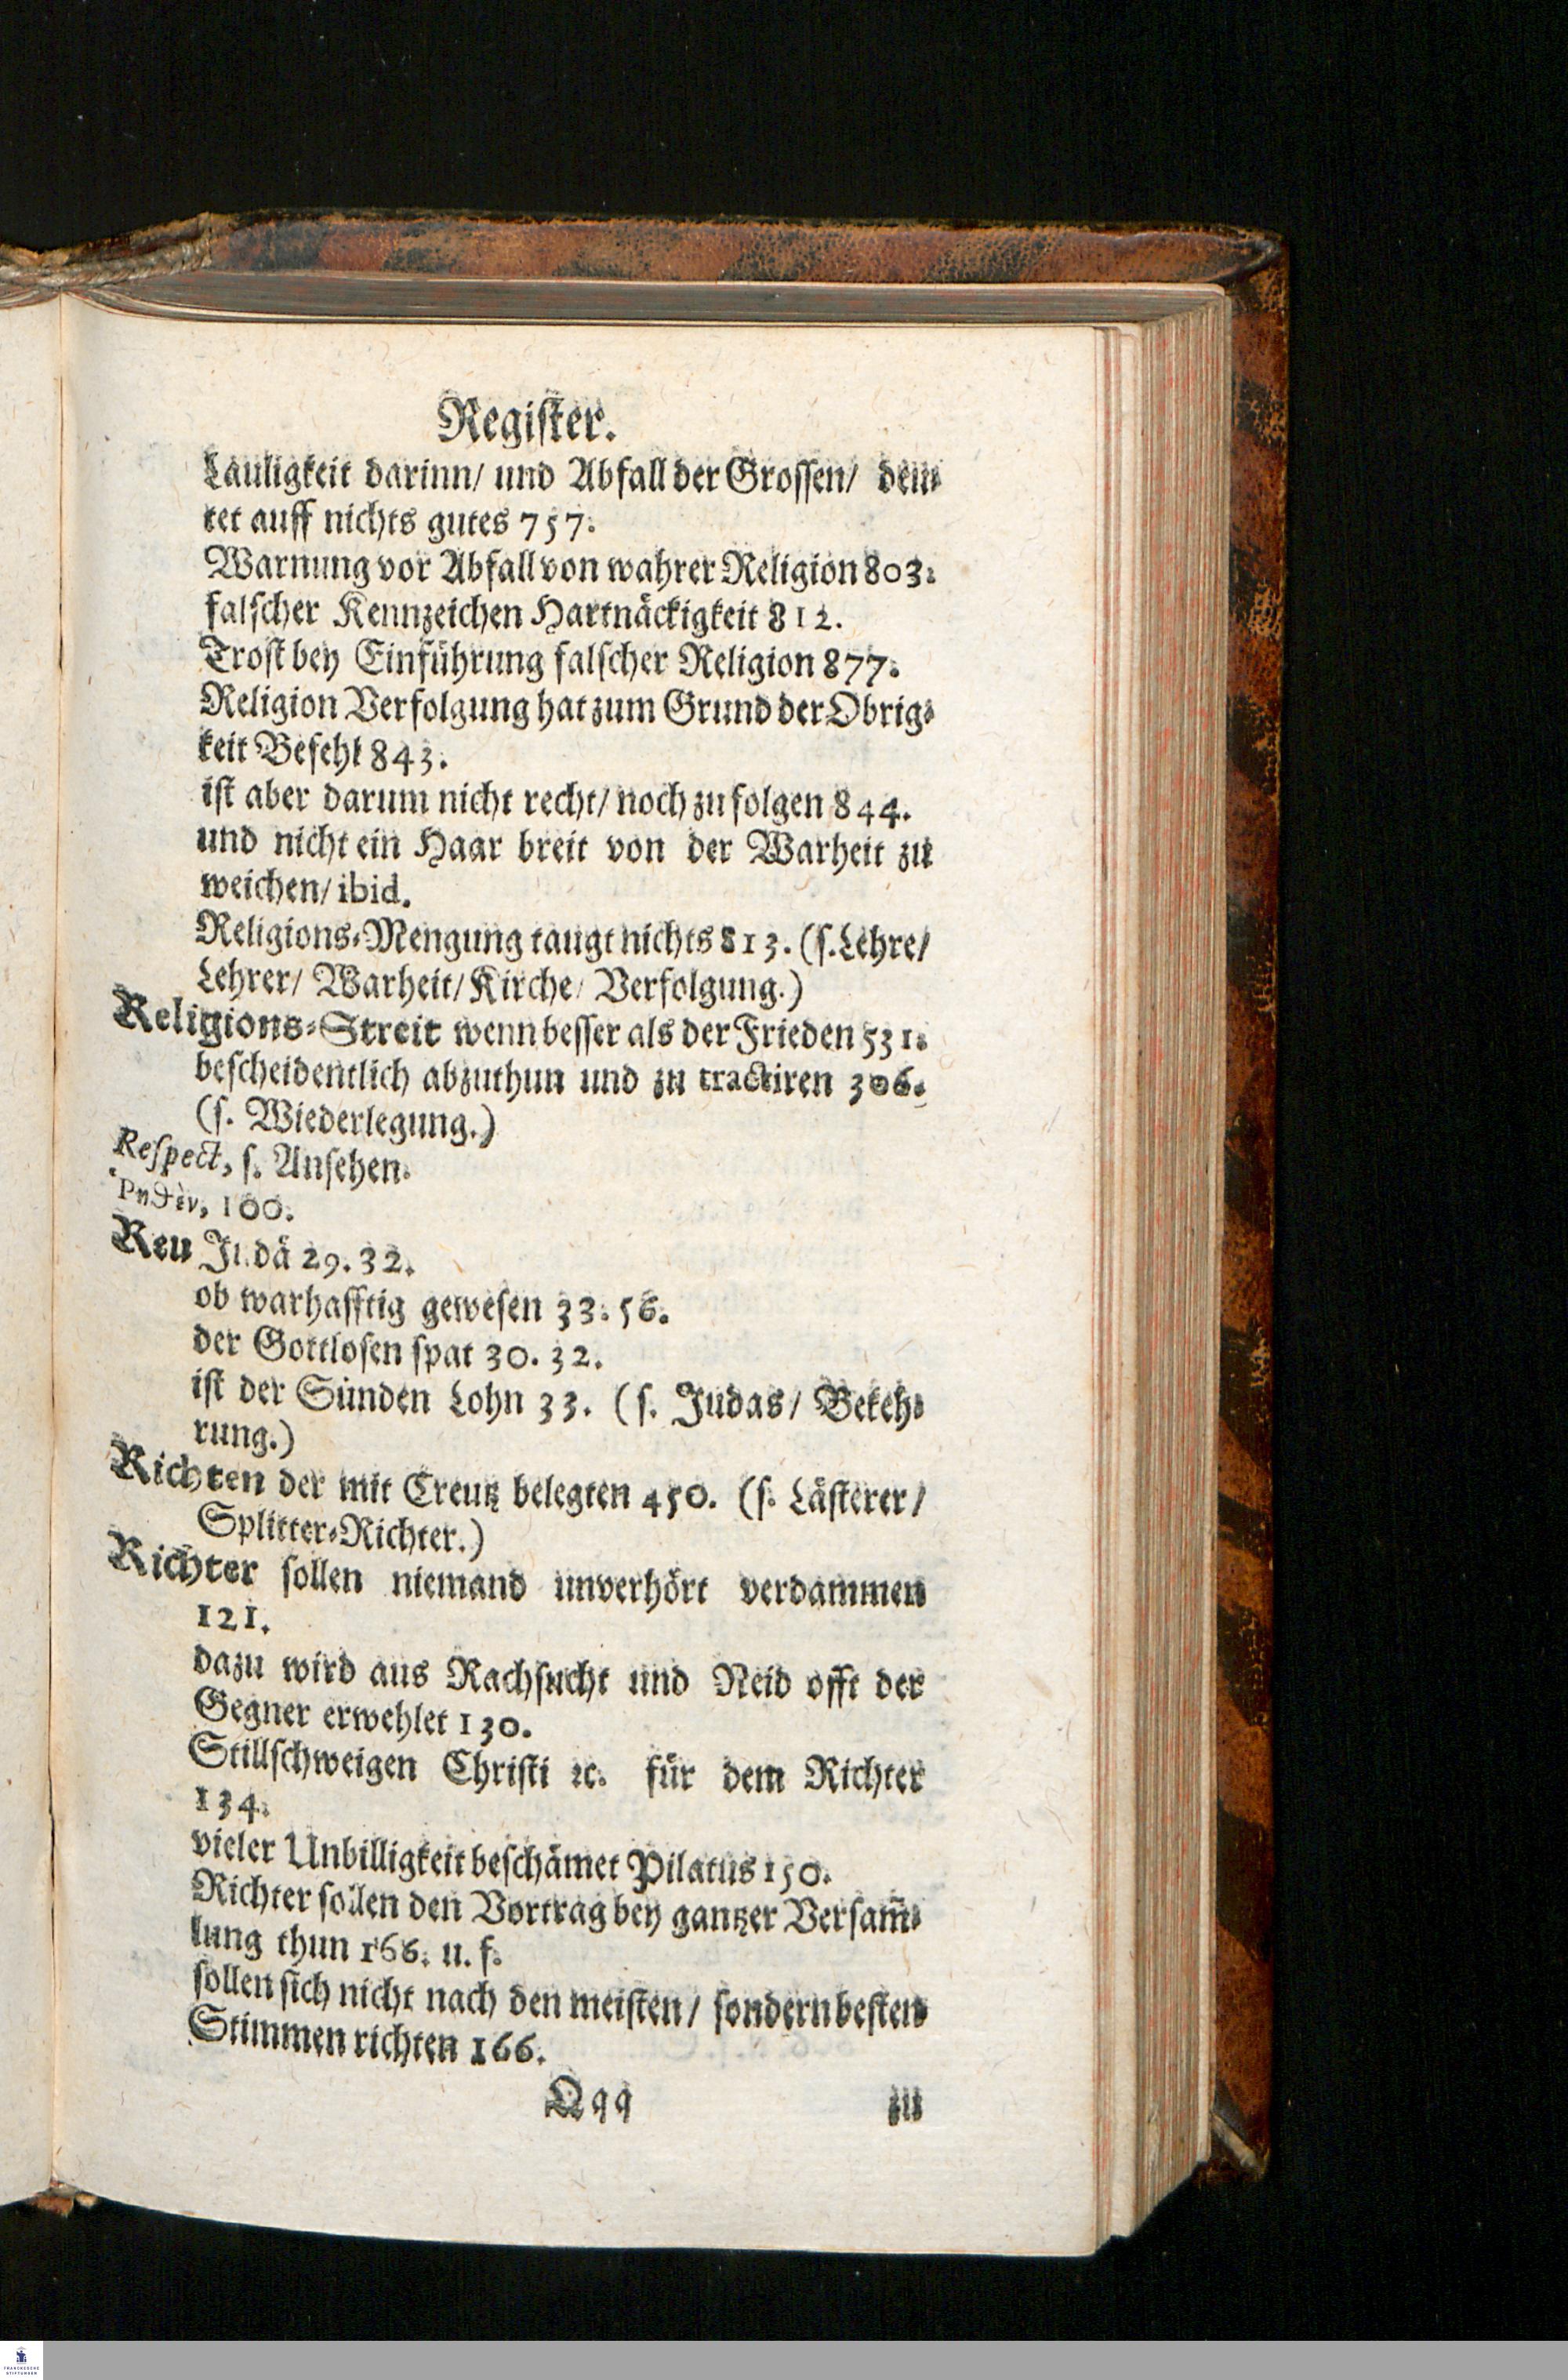 Register.
Lauligkeit darinn/ und Abfall der Grossen/ deu-
tet auff nichts gutes 757.
Warnung vor Abfall von wahrer Religion 803.
falscher Kennzeichen Hartnäckigkeit 812.
Trost bey Einführung falscher Religion 877.
Religion Verfolgung hat zum Grund der Obrig-
keit Befehl 843.
ist aber darum nicht recht/ noch zu folgen 844.
und nicht ein Haar breit von der Warheit zu
weichen/ ibid.
Religions-Mengung taugt nichts 813. (s. Lehre/
Lehrer/ Warheit/ Kirche/ Verfolgung.)
Religions-Streit wenn besser als der Frieden 531.
bescheidentlich abzuthun und zu tractiren 306.
(s. Wiederlegung.)
Respect, s. Ansehen.
Ῥηθὲν, 100.
Reu Judä 29. 32.
ob warhafftig gewesen 33. 56.
der Gottlosen spat 30. 32.
ist der Sünden Lohn 33. (s. Judas/ Bekeh-
rung.)
Richten der mit Creutz belegten 450. (s. Lästerer/
Splitter-Richter.)
Richter sollen niemand unverhört verdammen
121.
dazu wird aus Rachsucht und Neid offt der
Gegner erwehlet 130.
Stillschweigen Christi ꝛc. für dem Richter
134.
vieler Unbilligkeit beschämet Pilatus 150.
Richter sollen den Vortrag bey gantzer Versam̃-
lung thun 166. u. f.
sollen sich nicht nach den meisten/ sondern besten
Stimmen richten 166.
Qqq zu
FRANCKESCHE
STIFTUNGEN